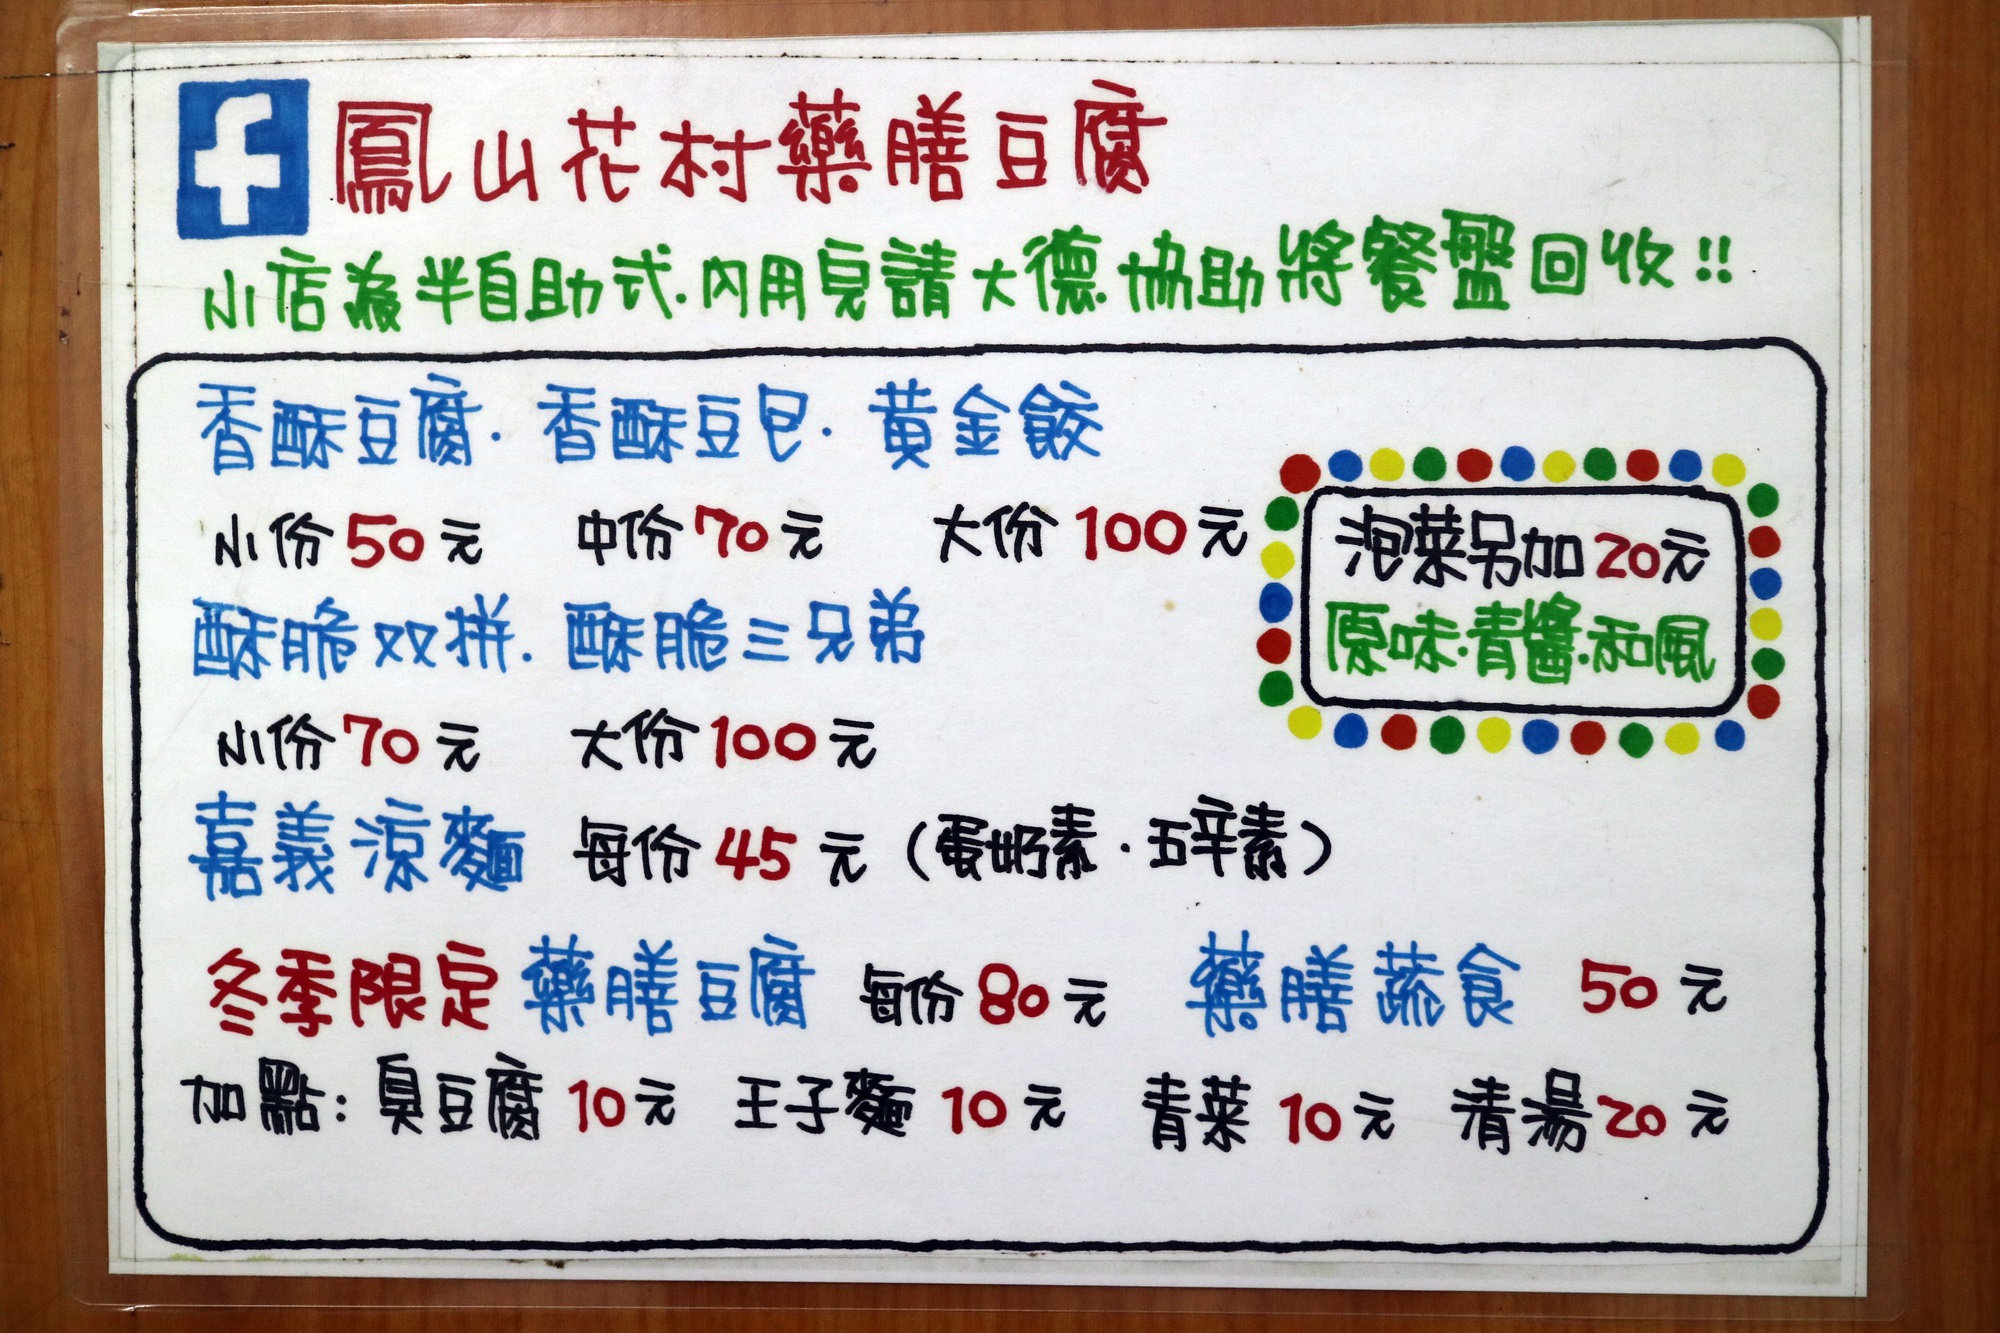 f 鳳山花村藥膳豆腐
小店為半自助式.內用完請大德.協助將餐盤回收!!
香酥豆腐.香酥豆包.黃金餃
小份50元 中份70元 大份100元
泡菜另加20元
原味.青醬.和風
酥脆双拼.酥脆三兄弟
小份70元 大份100元
嘉義涼麵 每份45元(蛋奶素.五辛素)
冬季限定藥膳豆腐 每份80元 藥膳蔬食 50元
加點:臭豆腐10元 王子麵10元 青菜10元 清湯20元